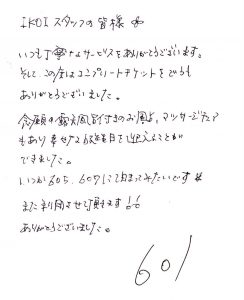 IKOI スタッフの皆様
いつも丁寧なサービスをありがとうございます。
そして、この度はコンプリートチケットをどうも
ありがとうございました。
念願の露天風呂付きのお風呂、マッサージチェア
もあり幸せな記念日を迎えることが
できました。
いつか605、607にて泊まってみたいです
また利用させて頂きます!!
ありがとうございました。
601